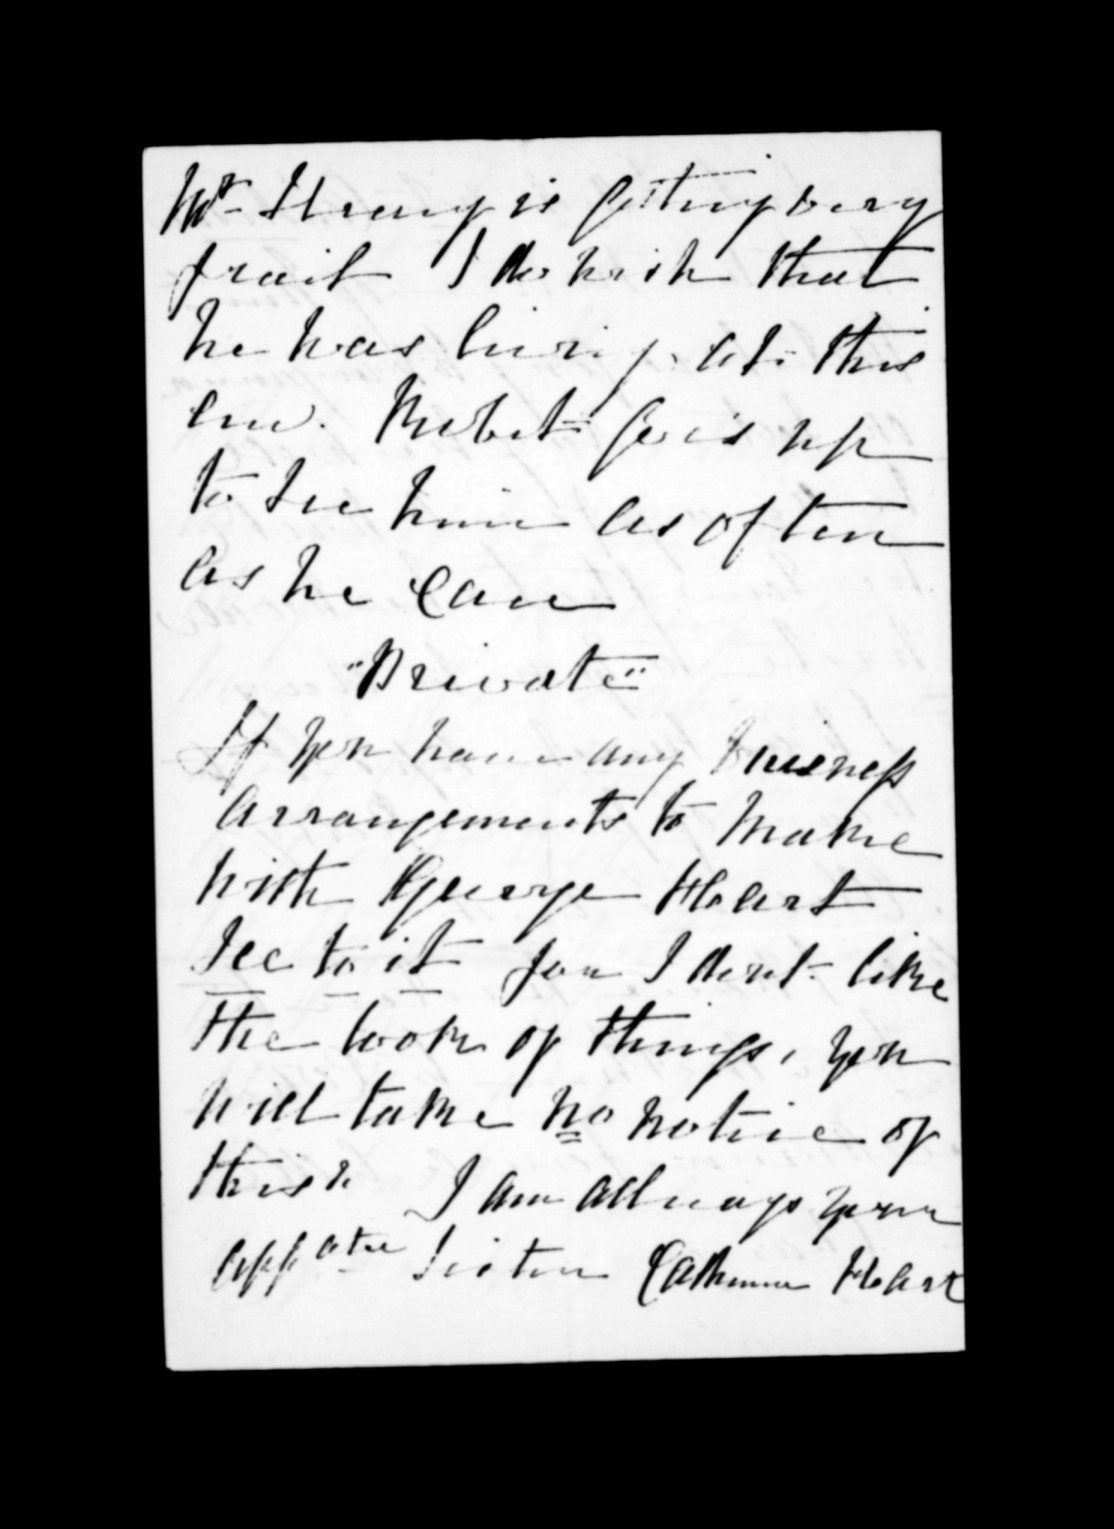 Mr Strang is getting very
frail I do wish that
he was living at this
end. Robert goes up
to see him as often
as he can
"Private"
If you have any business
arrangements to make
with George Heart
see to it for I dont like
the look of things, you
will take no notice of
this. I am allways your
affate sister Catherine Heart